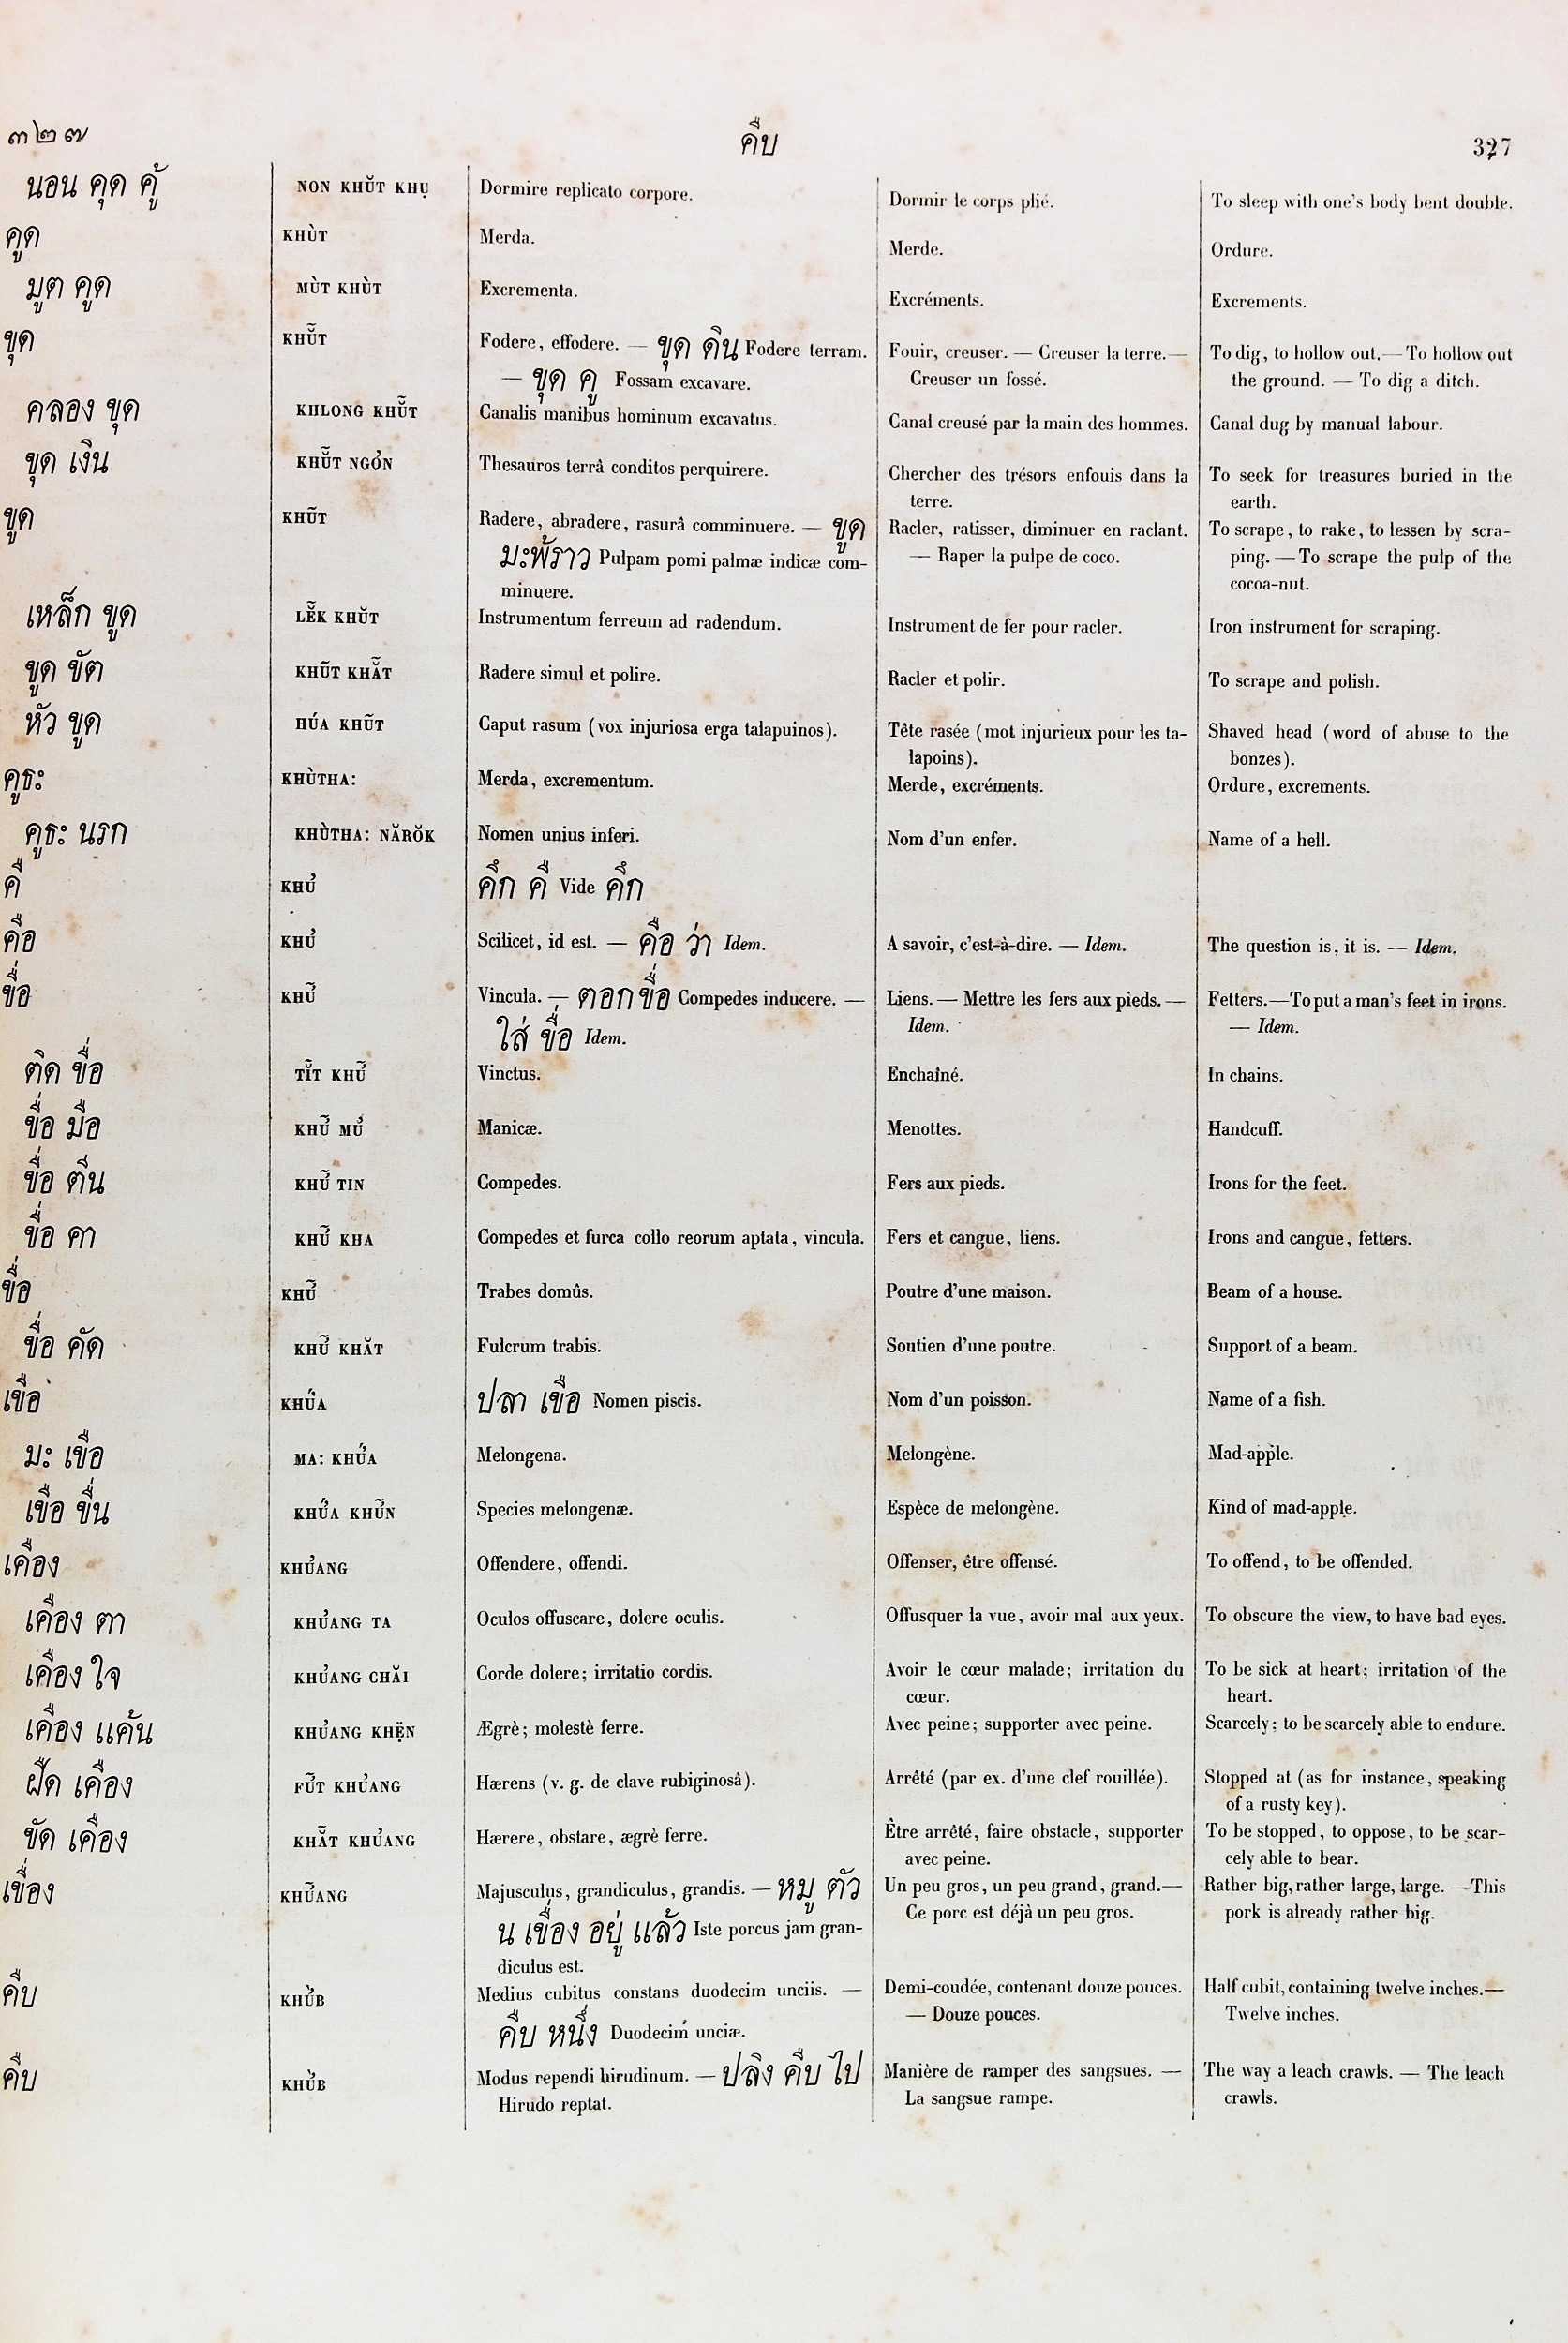 ๓๒๗ คืบ 327
นอน คุด คู้ NON KHŬT KHỤ Dormire replicato corpore. Dormir le corps plié. To sleep with one's body bent double.
คูด KHÙT Merda. Merde. Ordure.
มูต คูด MÙT KHÙT Excrementa. Excréments. Excrements.
ขุด KHŬ̃T Fodere, effodere. — ขุด ดิน Fodere terram. Fouir, creuser. — Creuser la terre.— To dig, to hollow out.— To hollow out
— ขุด คู Fossam excavare. Creuser un fossé. the ground. — To dig a ditch.
คลอง ขุด KHLONG KHŬ̃T Canalis manibus hominum excavatus. Canal creusé par la main des hommes. Canal dug by manual labour.
ขุด เงิน KHŬ̃T NGỎN Thesauros terrâ conditos perquirere. Chercher des trésors enfouis dans la To seek for treasures buried in the
terre. earth.
ขูด KHŨT Radere, abradere, rasurâ comminuere. — ขูด Racler, ratisser, diminuer en raclant. To scrape, to rake, to lessen by scra-
มะพ้ราว Pulpam pomi palmæ indicæ com- — Raper la pulpe de coco. ping. — To scrape the pulp of the
minuere. cocoa-nut.
เหล็ก ขูด LĔ̃K KHŬT Instrumentum ferreum ad radendum. Instrument de fer pour racler. Iron instrument for scraping.
ขูด ขัต KHŨT KHẴT Radere simul et polire. Racler et polir. To scrape and polish.
หัว ขูด HÚA KHŨT Caput rasum (vox injuriosa erga talapuinos). Tête rasée (mot injurieux pour les ta- Shaved head (word of abuse to the
lapoins). bonzes).
คูธะ KHÙTHA: Merda, excrementum. Merde, excréments. Ordure, excrements.
คูธะ นรก KHÙTHA: NĂRŎK Nomen unius inferi. Nom d'un enfer. Name of a hell.
คื KHỦ คึก คื Vide คึก
คือ KHỦ Scilicet, id est. — คือ ว่า Idem. A savoir, c'est-à-dire. — Idem. The question is, it is. — Idem.
ขื่อ KHỦ̃ Vincula. — ตอกขื่อ Compedes inducere. — Liens. — Mettre les fers aux pieds. — Fetters.—To put a man's feet in irons.
ใส่ ขื่อ Idem. Idem. — Idem.
ติด ขื่อ TĬ̃T KHỦ̃ Vinctus. Enchaîné. In chains.
ขื่อ มือ KHỦ̃ MỦ Manicæ. Menottes. Handcuff.
ขื่อ ตีน KHỦ̃ TIN Compedes. Fers aux pieds. Irons for the feet.
ขื่อ คา KHỦ̃ KHA Compedes et furca collo reorum aptata, vincula. Fers et cangue, liens. Irons and cangue, fetters.
ขื่อ KHỦ̃ Trabes domûs. Poutre d'une maison. Beam of a house.
ขื่อ คัด KHỦ̃ KHĂT Fulcrum trabis. Soutien d'une poutre. Support of a beam.
เขือ KHỦ́A ปลา เขือ Nomen piscis. Nom d'un poisson. Name of a fish.
มะ เขือ MA: KHỦ́A Melongena. Melongène. Mad-apple.
เขือ ขื่น KHỦ́A KHỦ̃N Species melongenæ. Espèce de melongène. Kind of mad-apple.
เคือง KHỦANG Offendere, offendi. Offenser, être offensé. To offend, to be offended.
เคือง ตา KHỦANG TA Oculos offuscare, dolere oculis. Offusquer la vue, avoir mal aux yeux. To obscure the view, to have bad eyes.
เคือง ใจ KHỦANG CHĂI Corde dolere; irritatio cordis. Avoir le cœur malade; irritation du To be sick at heart; irritation of the
cœur. heart.
เคือง แค้น KHỦANG KHẸ̈N Ægrè; molestè ferre. Avec peine; supporter avec peine. Scarcely; to be scarcely able to endure.
ฝืด เคือง FỦ̃T KHỦANG Hærens (v. g. de clave rubiginosâ). Arrêté (par ex. d'une clef rouillée). Stopped at (as for instance, speaking
of a rusty key).
ขัด เคือง KHẴT KHỦANG Hærere, obstare, ægrè ferre. Être arrêté, faire obstacle, supporter To be stopped, to oppose, to be scar-
avec peine. cely able to bear.
เขื่อง KHỦ̃ANG Majusculus, grandiculus, grandis. — หมู ตัว Un peu gros, un peu grand, grand.— Rather big, rather large, large. —This
น เขื่อง อยู่ แล้ว Iste porcus jam gran- Ce porc est déjà un peu gros. pork is already rather big.
diculus est.
คืบ KHỦ̀B Medius cubitus constans duodecim unciis. — Demi-coudée, contenant douze pouces. Half cubit, containing twelve inches.—
คืบ หนึ่ง Duodecim unciæ. — Douze pouces. Twelve inches.
คืบ KHỦ̀B Modus rependi hirudinum. — ปลิง คืบ ไป Manière de ramper des sangsues. — The way a leach crawls. — The leach
Hirudo reptat. La sangsue rampe. crawls.